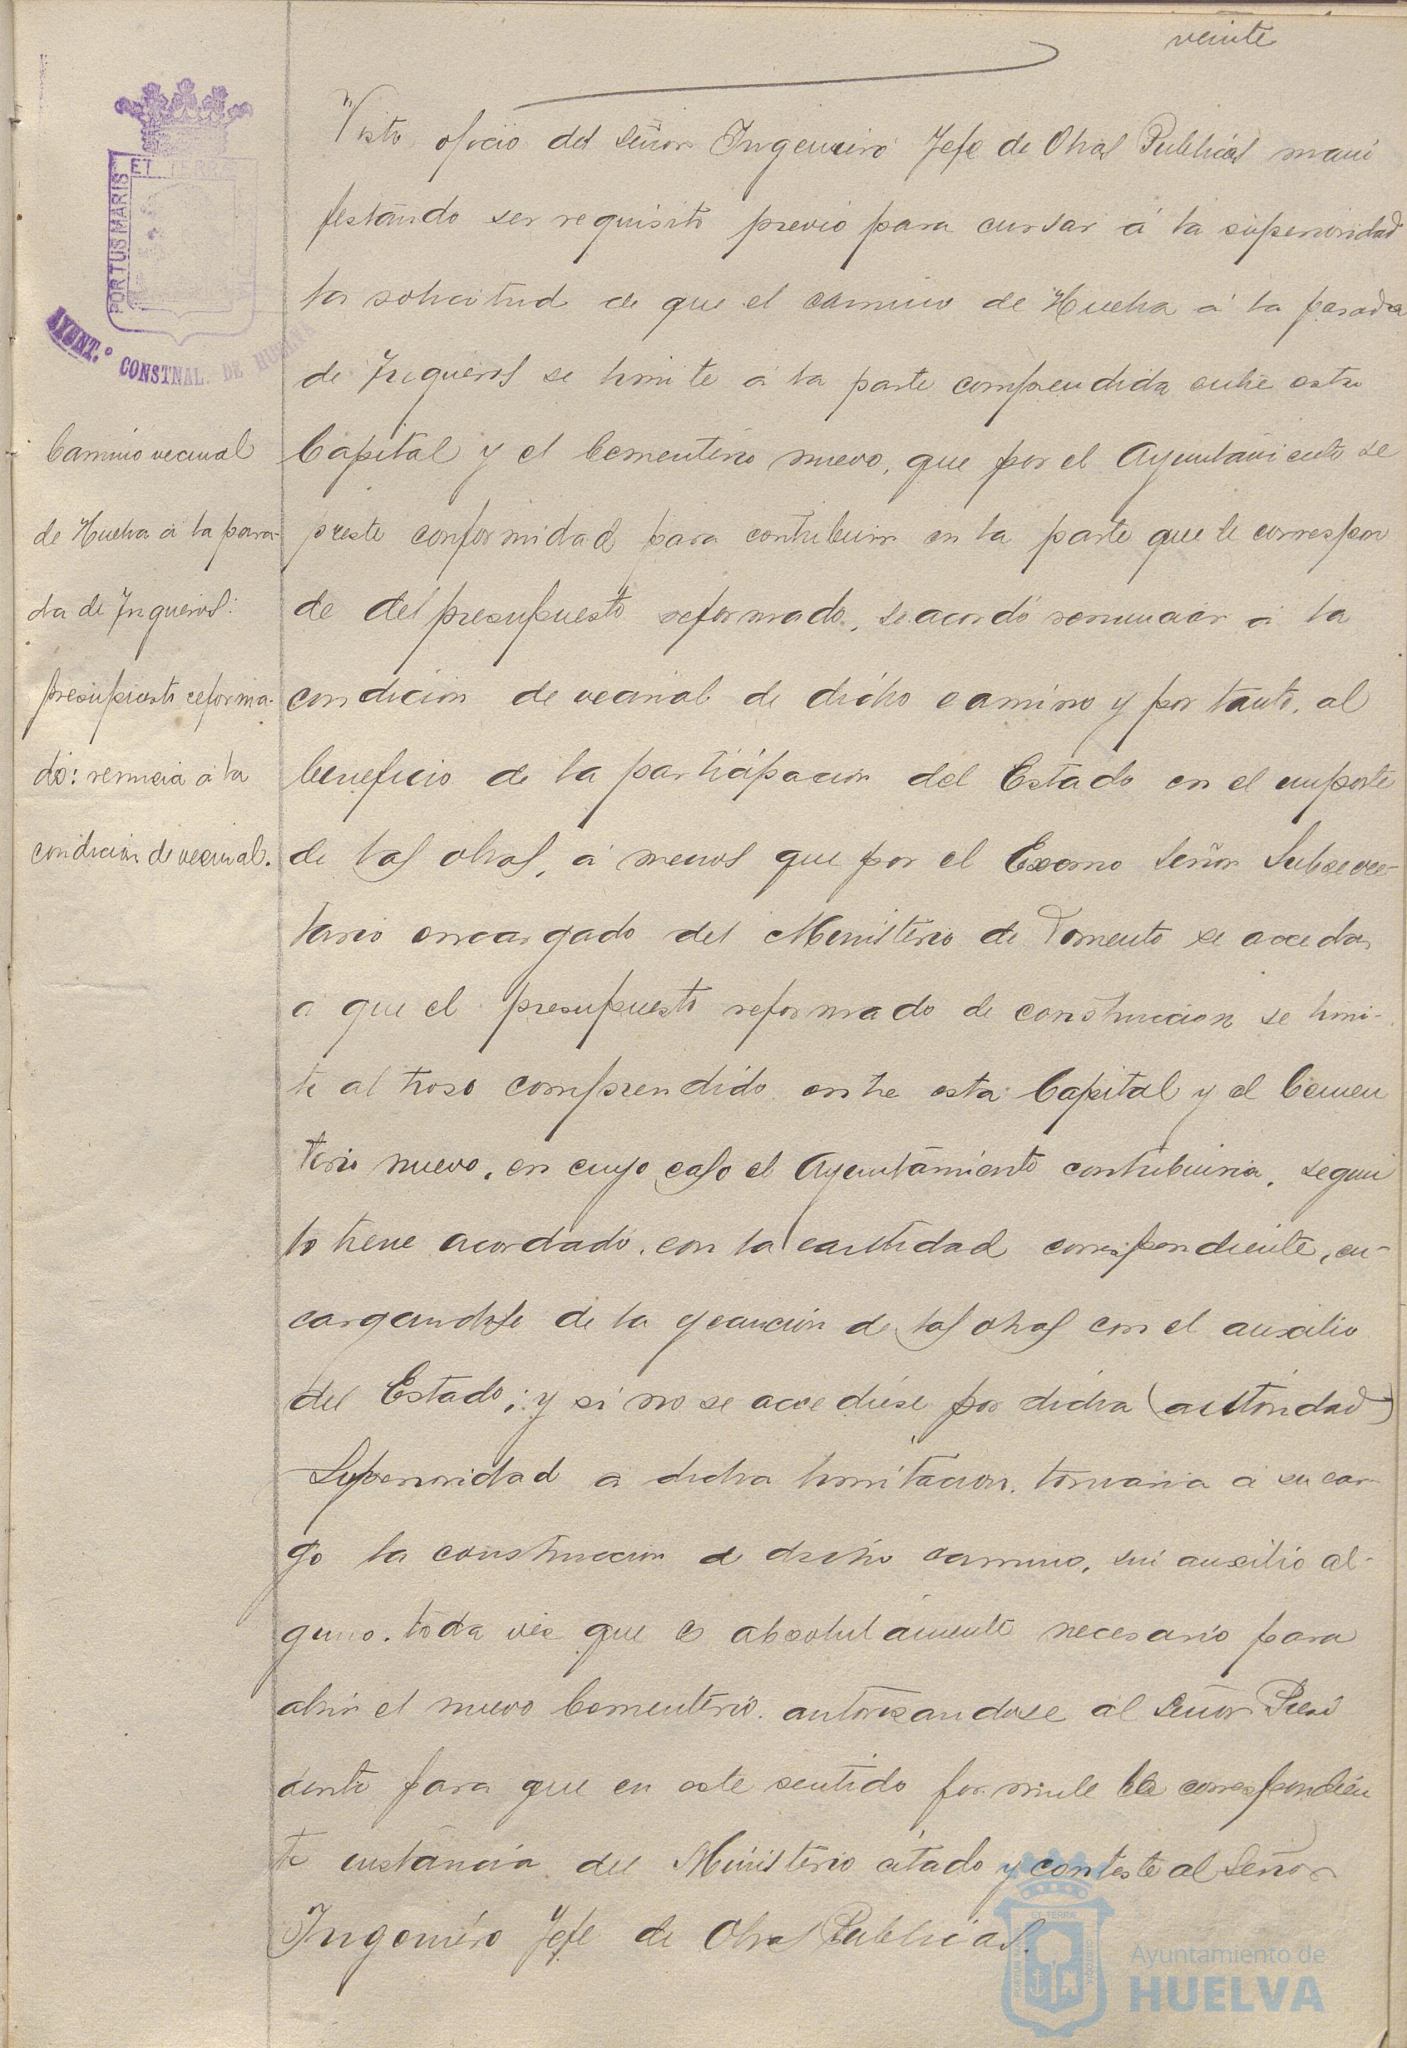 veinte
PORTUS MARIS
ET TERRÆ
AYUNT.º CONSTNAL. DE HUELVA
Camino vecinal
de Huelva á la para-
da de Trigueros:
presupuesto reforma-
do: renuncia á la
condicion de vecinal.
Visto oficio del señor Ingeniero Jefe de Obras Publicas mani
festando ser requisito previo para cursar á la superioridad
la solicitud de que el camino de Huelva á la parada
de Trigueros se limite á la parte comprendida entre esta
Capital y el Cementerio nuevo, que por el Ayuntamiento se
preste conformidad para contribuir en la parte que le correspon
de del presupuesto reformado, se acordó renunciar á la
condicion de vecinal de dicho camino y por tanto, al
beneficio de la participacion del Estado en el importe
de las obras, á menos que por el Excmo Señor Subsecre-
tario encargado del Ministerio de Fomento se acceda
á que el presupuesto reformado de construccion se limi-
te al troso comprendido entre esta Capital y el Cemen
terio nuevo, en cuyo caso el Ayuntamiento contribuiria, segun
lo tiene acordado, con la cantidad correspondiente, en-
cargandose de la ejecucion de las obras con el auxilio
del Estado; y si no se accediese por dicha (autoridad)
Superioridad a dicha limitacion, tomaria á su car
go la construccion de dicho camino, sin auxilio al-
guno, toda vez que es absolutamente necesario para
abrir el nuevo Cementerio, autorisandose al Señor Presi
dente para que en este sentido formule la correspondien
te instancia del Ministerio citado y conteste al Señor
Ingeniero Jefe de Obras Publicas.
Ayuntamiento de
HUELVA